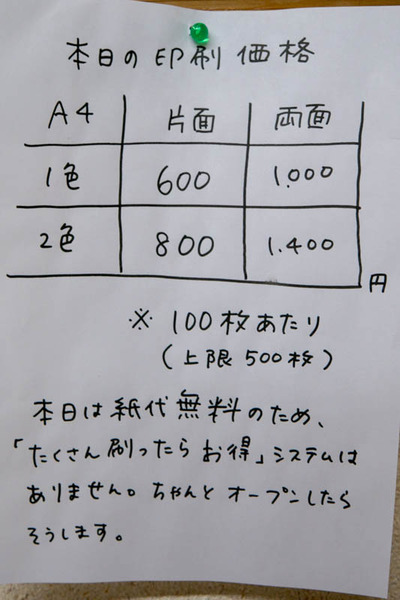 本日の印刷価格
A4 片面 両面
1色 600 1.000
2色 800 1.400
円
※ 100枚あたり
(上限 500枚)
本日は紙代無料のため、
「たくさん刷ったらお得」システムは
ありません。ちゃんとオープンしたら
そうします。